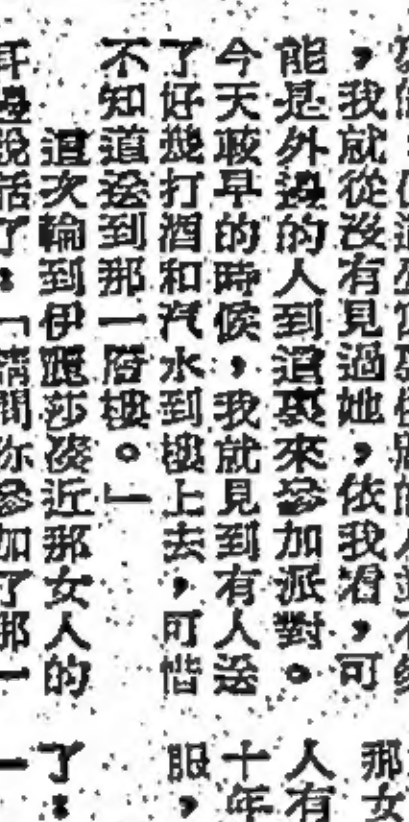 ，我就從沒有見過她，依我看，可
能是外邊的人到這裏來參加派對。
今天較早的時候，我就見到有人送
了好幾打酒和汽水到樓上去，可惜
不知道送到那一層樓。」
這次輪到伊麗莎湊近那女人的
耳邊說話了：「請問你參加了那一
那女
人有
十年
服，
了：
一